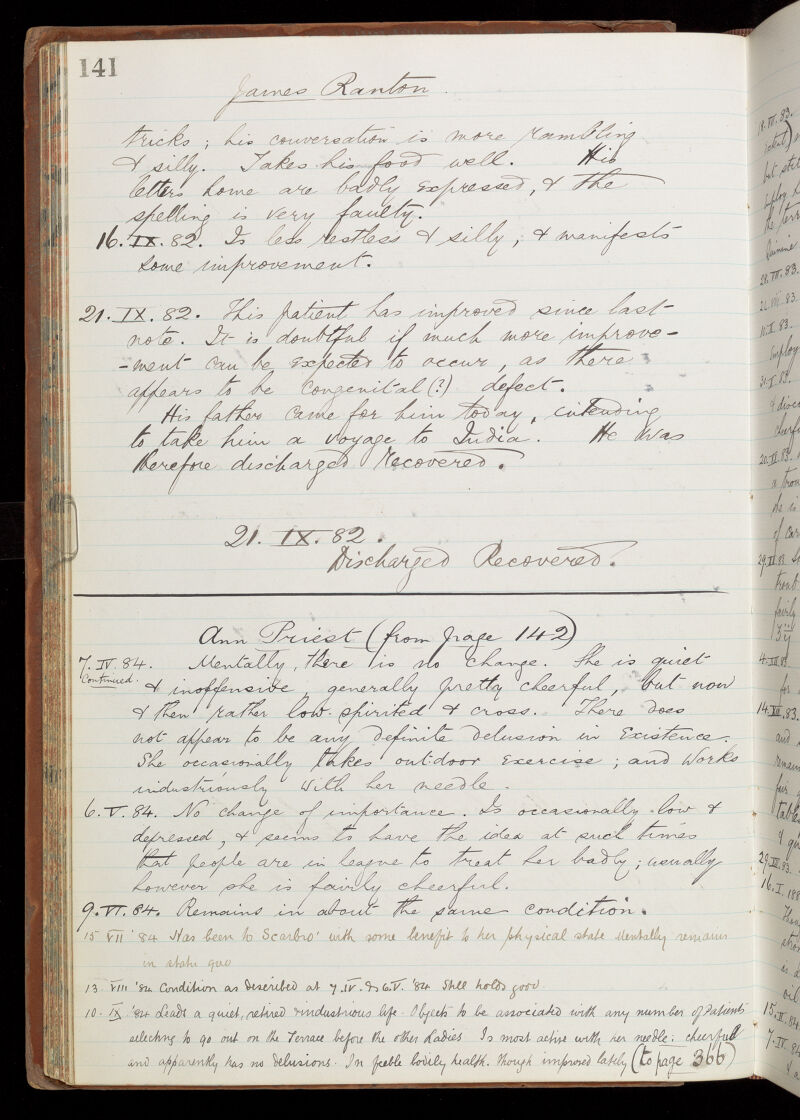 141
James Ranton.
tricks; his conversation is more rambling
& silly. Takes his food well. His
letters home are badly expressed, & the
spelling is very faulty.
16. IX. 82. Is less restless & silly, & manifests
some improvement.
21. IX. 82. This patient has improved since last
note. It is doubtful if much more improve-
-ment can be expected to occur, as there
appears to be congenital (?) defect.
His father came for him today, intending
to take him a voyage to India. He was
therefore discharged recovered.
21. IX. 82.
Discharged Recovered.
Ann Priest (from page 142)
7. IV. 84. Mentally, there is no change. She is quiet
continued. & inoffensive, generally pretty cheerful, but now
& then rather low-spirited & cross. There does
not appear to be any definite delusion in existence.
She occasionally takes outdoor exercise; and works
industriously with her needle.
6. V. 84. No change of importance. Is occasionally low &
depressed, & seems to have the idea at such times
that people are in league to treat her badly; usually
however she is fairly cheerful.
9. VI. 84. Remains in about the same condition.
15 VII '84 Has been to Scarbro' with some benefit to her physical state Mentally remains
in statu quo
13 VIII '84 Condition as described at 7. IV. & 6. V. '84 still holds good
10. IX '84 Leads a quiet, retired & industrious life. Objects to be associated with any number of Patients
selecting to go out on the Terrace before the other Ladies Is most active with her needle: cheerful
and apparently has no delusions. In feeble bodily health. though improved lately (to page 366)